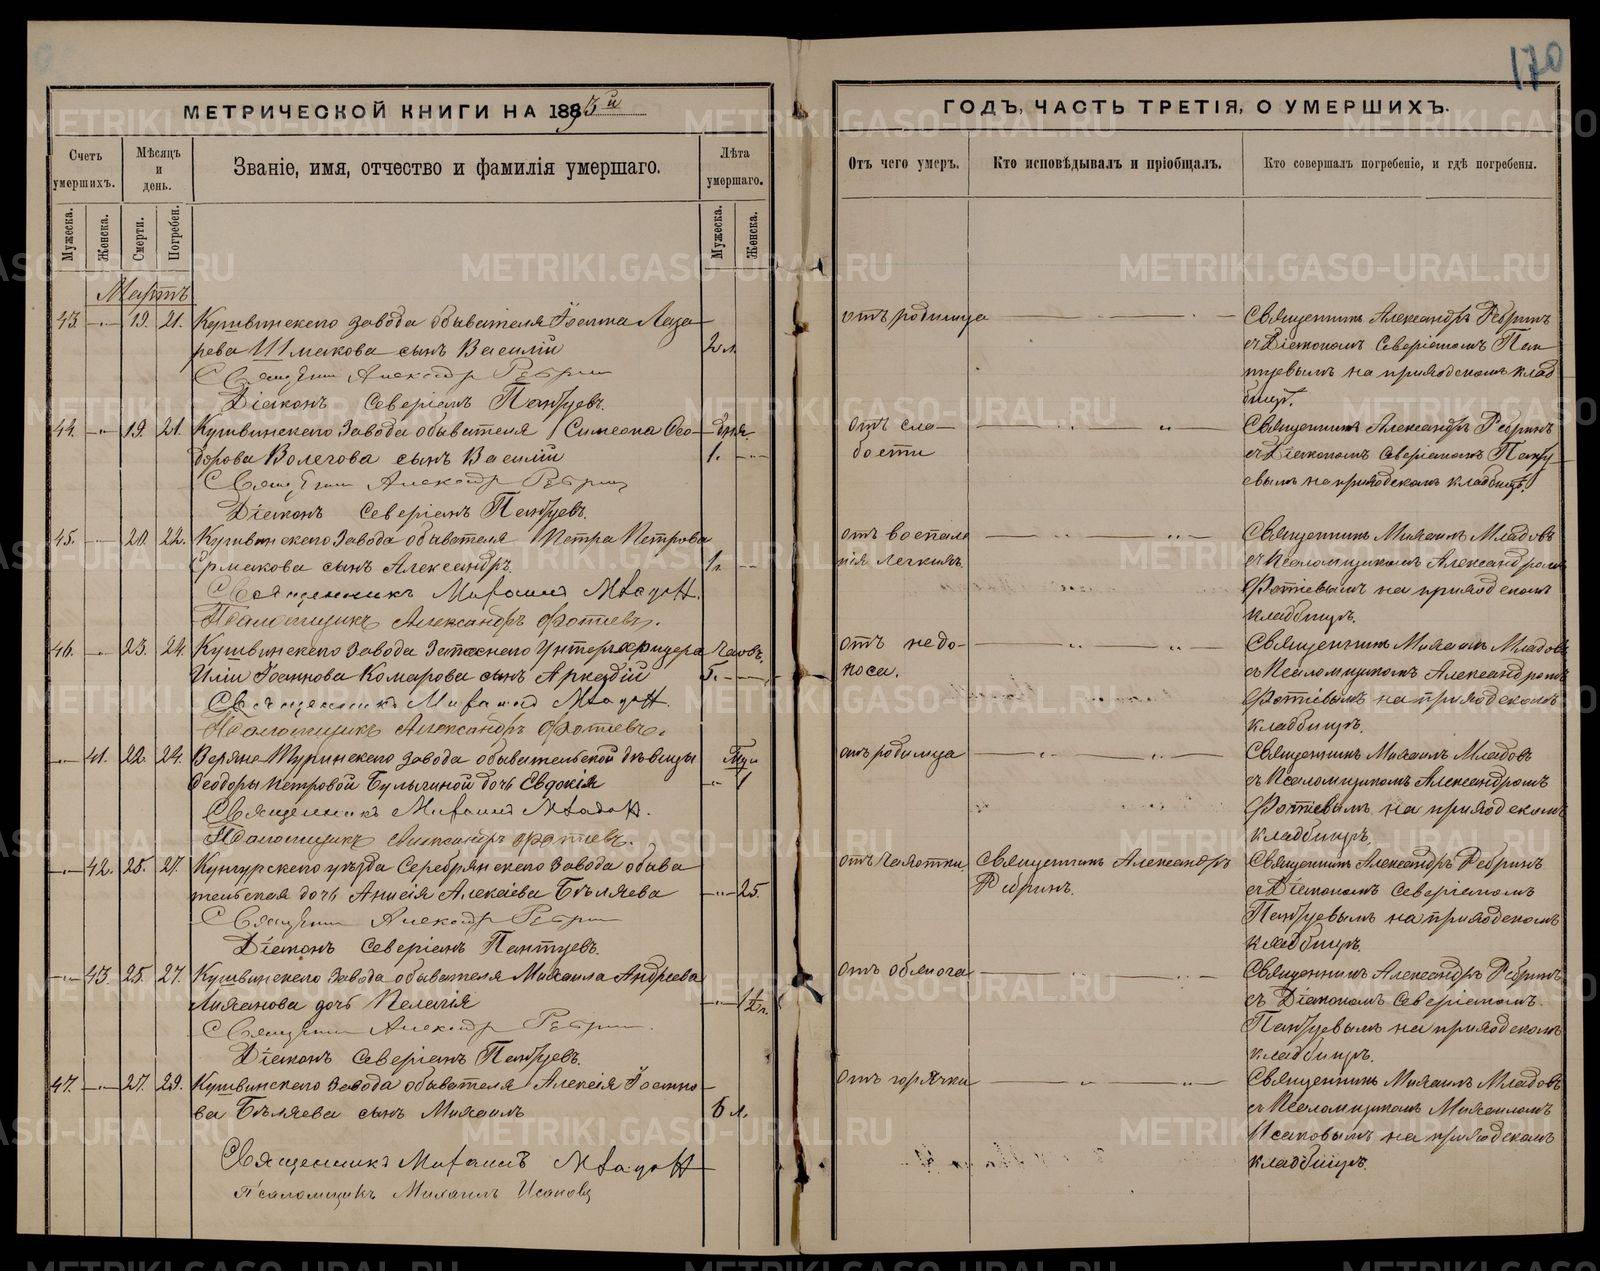 170
МЕТРИЧЕСКОЙ КНИГИ НА 1893й
ГОДЪ, ЧАСТЬ ТРЕТІЯ, О УМЕРШИХЪ.
Счетъ умершихъ.
Мѣсяцъ и день.
Званіе, имя, отчество и фамилія умершаго.
Лѣта умершаго.
Отъ чего умеръ.
Кто исповѣдывалъ и пріобщалъ.
Кто совершалъ погребеніе, и гдѣ погребены.
Мужеска.
Женска.
Смерти.
Погребен.
Мужеска.
Женска.
Мартъ
43. 19. 21. Кушвинскаго завода обывателя Іоанна Лаза-
рева Шмакова сынъ Василій 2 л.
Священникъ Александръ Ребринъ
Діаконъ Северіанъ Пантуевъ.
отъ родимца
Священникъ Александръ Ребринъ
съ Діакономъ Северіаномъ Пан
туевымъ на приходскомъ клад
бищѣ.
44. 19. 21. Кушвинскаго Завода обывателя Симеона Ѳео- дня
дорова Волегова сынъ Василій 1.
Священникъ Александръ Ребринъ
Діаконъ Северіанъ Пантуевъ.
отъ сла-
бости
Священникъ Александръ Ребринъ
съ Діакономъ Северіаномъ Панту-
евымъ на приходскомъ кладбищѣ.
45. 20. 22. Кушвинскаго Завода обывателя Петра Петрова
Ермакова сынъ Александръ. 1 г.
Священникъ Михаилъ Младовъ.
Псаломщикъ Александръ Фотіевъ.
отъ воспале
нія легкихъ.
Священникъ Михаилъ Младовъ
съ Псаломщикомъ Александромъ
Фотіевымъ на приходскомъ
кладбищѣ.
46. 23. 24. Кушвинскаго Завода Запаснаго Унтеръ-офицера Часовъ.
Иліи Іоаннова Комарова сынъ Аркадій 5.
Священникъ Михаилъ Младовъ.
Псаломщикъ Александръ Фотіевъ.
отъ недо-
носа.
Священникъ Михаилъ Младовъ
съ Псаломщикомъ Александромъ
Фотіевымъ на приходскомъ
кладбищѣ.
41. 22. 24. Верхне Туринскаго Завода обывательской дѣвицы
Ѳеодоры Петровой Булыгиной дочь Евдокія 1
Священникъ Михаилъ Младовъ.
Псаломщикъ Александръ Фотіевъ.
отъ родимца
Священникъ Михаилъ Младовъ
съ Псаломщикомъ Александромъ
Фотіевымъ на приходскомъ
кладбищѣ.
42. 25. 27. Кунгурскаго уѣзда Серебрянскаго Завода обыва
тельская дочь Анисія Алексіева Бѣляева 25.
Священникъ Александръ Ребринъ
Діаконъ Северіанъ Пантуевъ.
отъ чахотки
Священникъ Александръ
Ребринъ.
Священникъ Александръ Ребринъ
съ Діакономъ Северіаномъ
Пантуевымъ на приходскомъ
кладбищѣ.
43. 25. 27. Кушвинскаго Завода обывателя Михаила Андреева
Лиханова дочь Пелагія 1½ г.
Священникъ Александръ Ребринъ.
Діаконъ Северіанъ Пантуевъ.
отъ
Священникъ Александръ Ребринъ
съ Діакономъ Северіаномъ.
Пантуевымъ на приходскомъ
кладбищѣ.
47. 27. 29. Кушвинскаго Завода обывателя Алексія Іоанно-
ва Бѣляева сынъ Михаилъ 5 л.
Священникъ Михаилъ Младовъ
Псаломщикъ Михаилъ Исаковъ
отъ горячки
Священникъ Михаилъ Младовъ
съ Псаломщикомъ Михаиломъ
Исаковымъ на приходскомъ
кладбищѣ.
METRIKI.GASO-URAL.RU